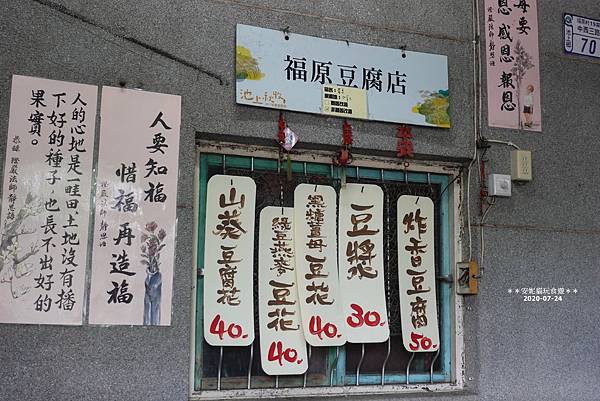 福原豆腐店
池上
山葵豆腐花
40.
綠豆燕麥豆花
40.
黑糖薑母豆花
40.
豆漿
30.
炸香豆腐
50.
人的心地是一畦田土地沒有播
下好的種子也長不出好的
果實。
恭錄 證嚴法師靜思語
人要知福
惜福再造福
母要
恩感恩報恩
中西三路
70
＊＊安妮貓玩食趣＊＊
2020-07-24